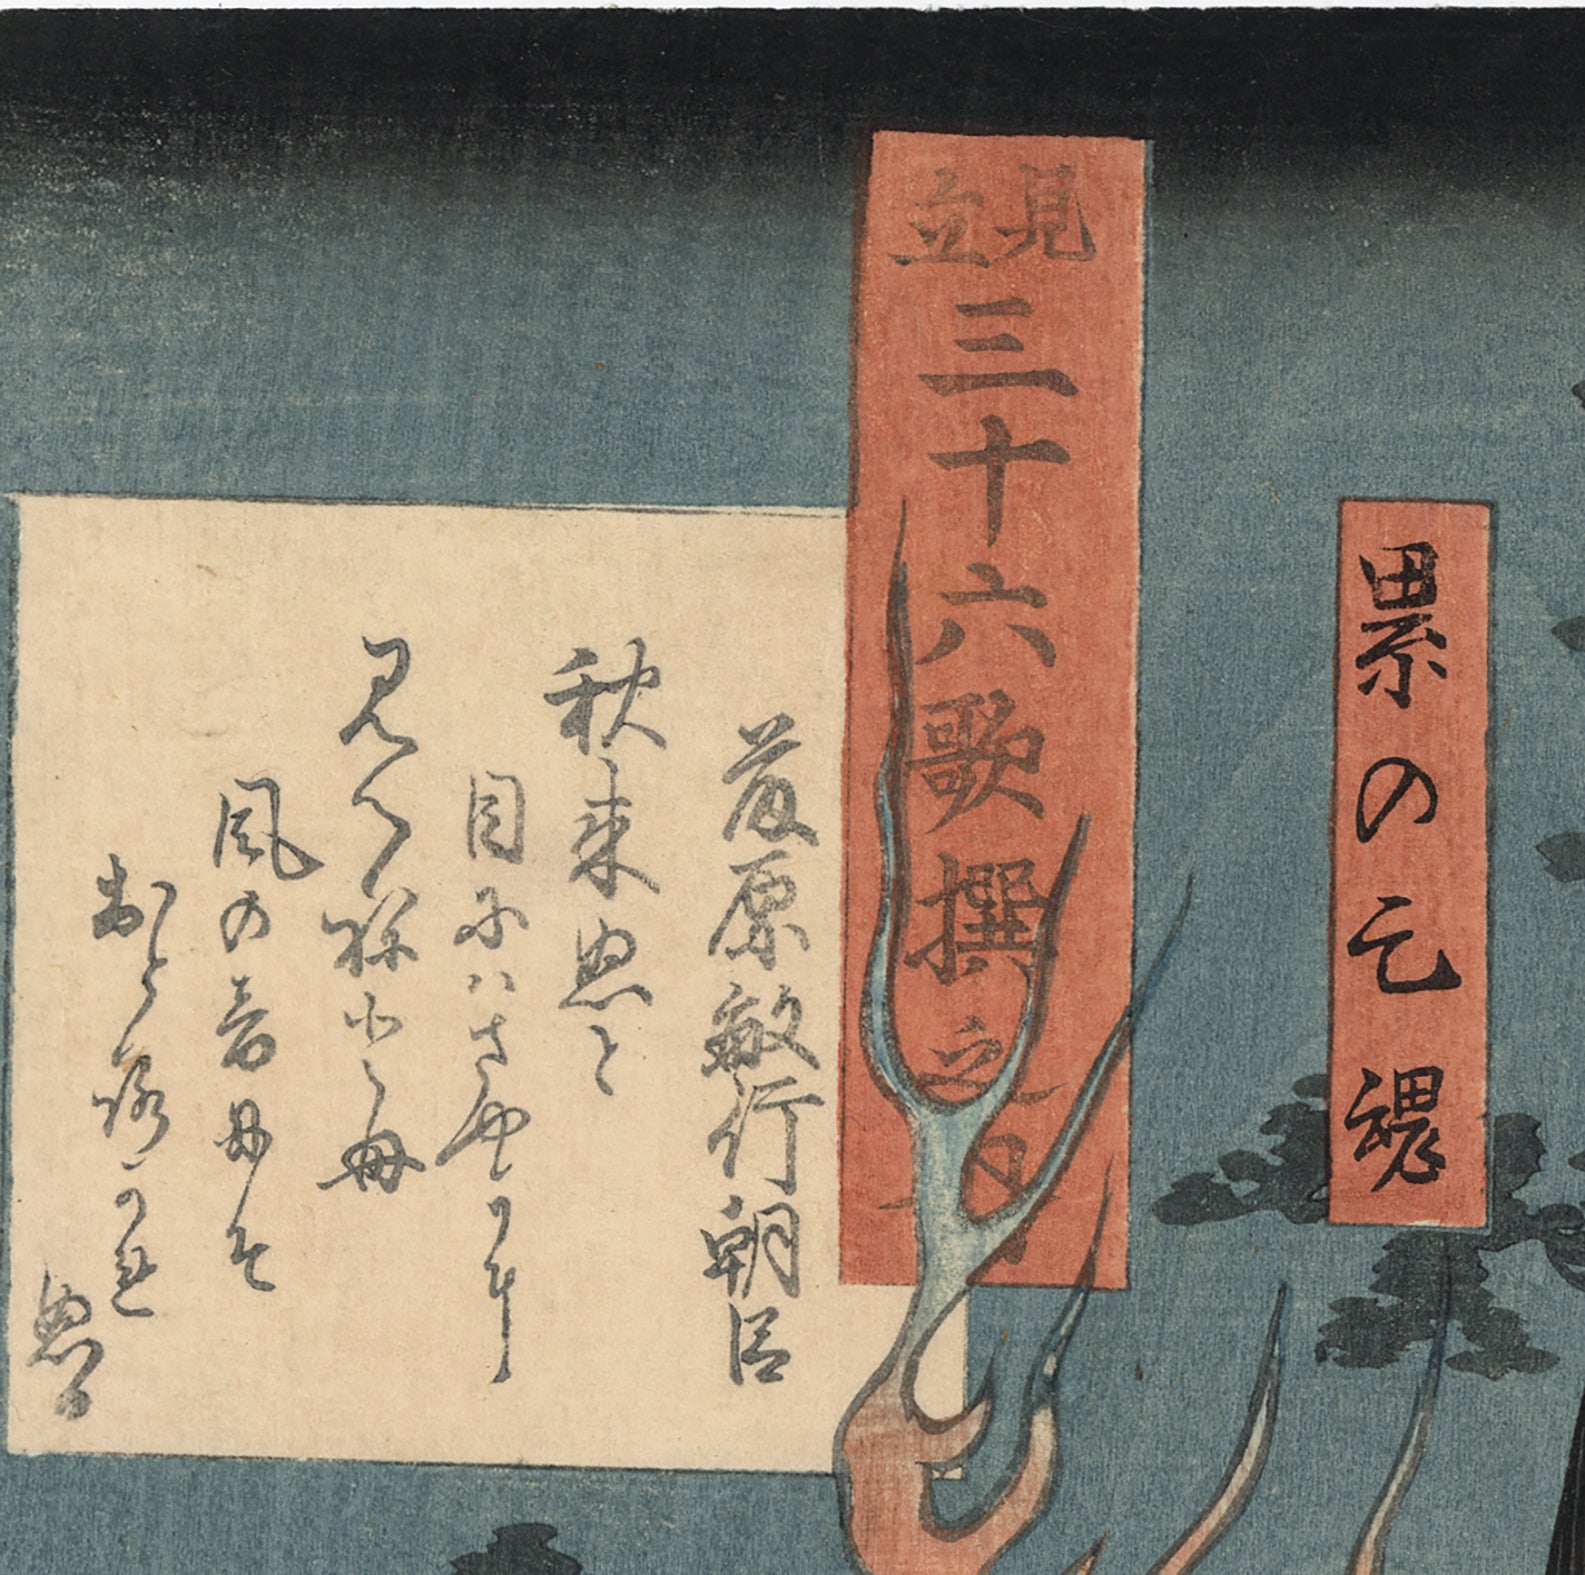 累の亡魂
見立
三十六歌撰之内
藤原敏行朝臣
秋来ぬと
目にハさやかに
見へねども
風の音にそ
おどろかれ
ぬる